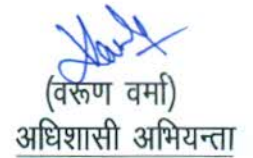 (वरूण वर्मा)
अधिशासी अभियन्ता